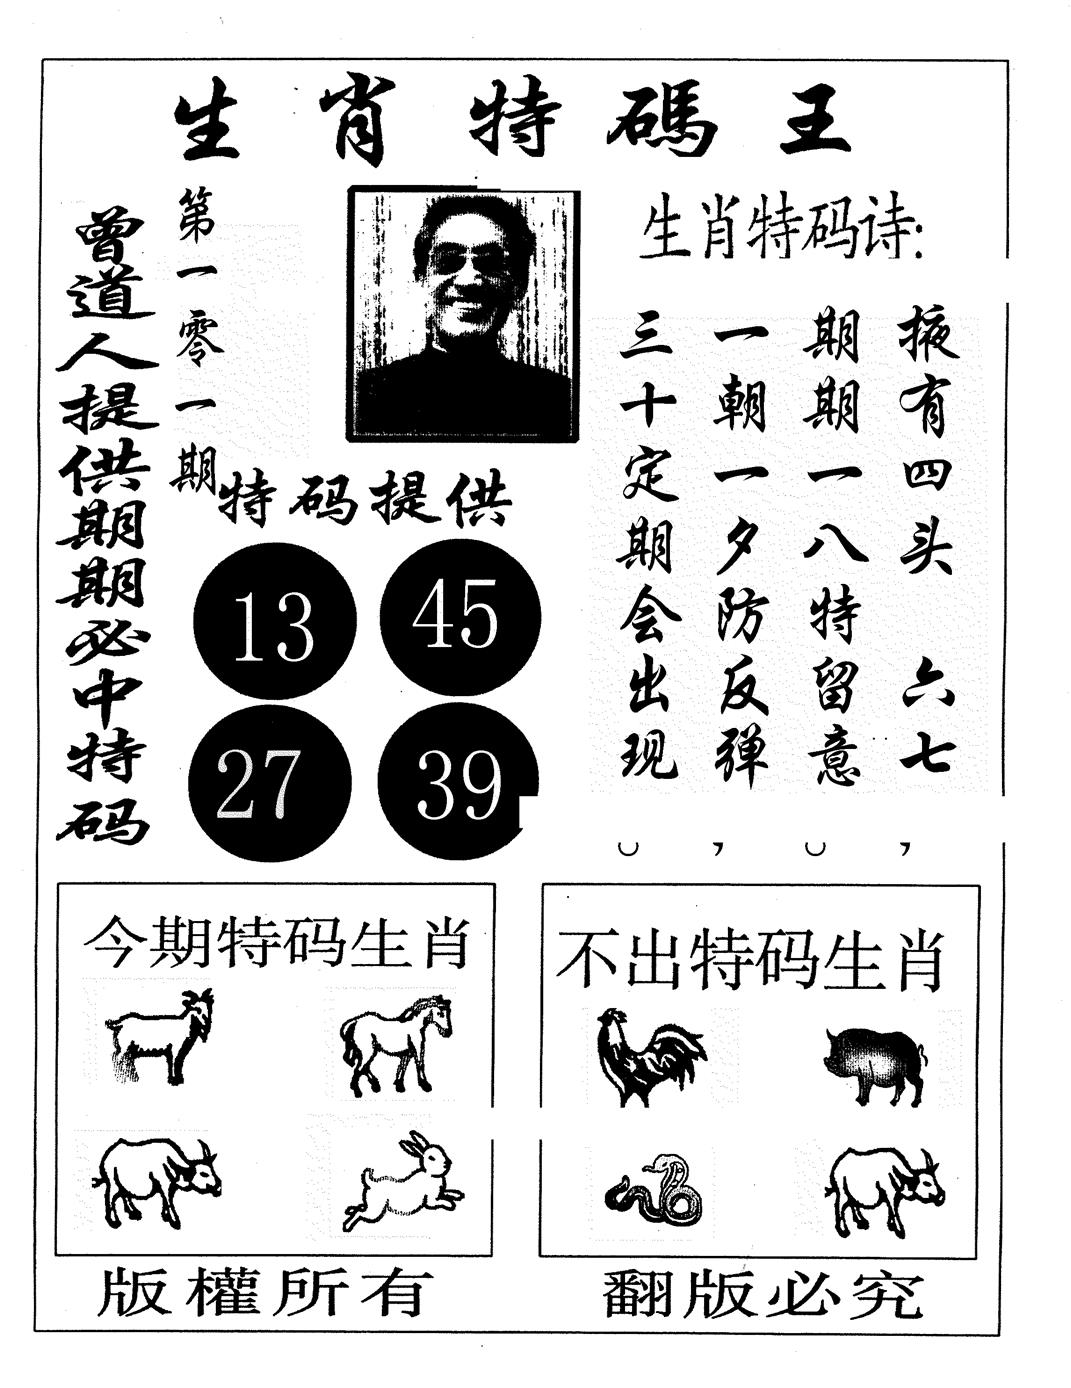 生肖特碼王
曾道人提供期期必中特码
第一零一期
生肖特码诗:
掖有四头六七,
期期一八特留意。
一朝一夕防反弹,
三十定期会出现。
特码提供
13 45
27 39
今期特码生肖
不出特码生肖
版權所有
翻版必究